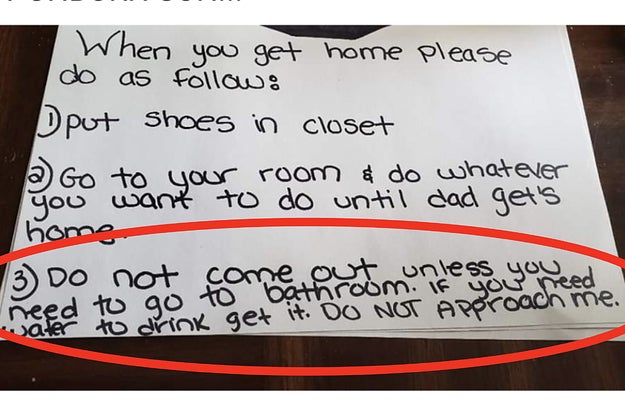 When you get home please
do as follow:
1) put shoes in closet
2) Go to your room & do whatever
you want to do until dad get's
home.
3) Do not come out unless you
need to go to bathroom. If you need
water to drink get it. DO NOT APPROACH me.